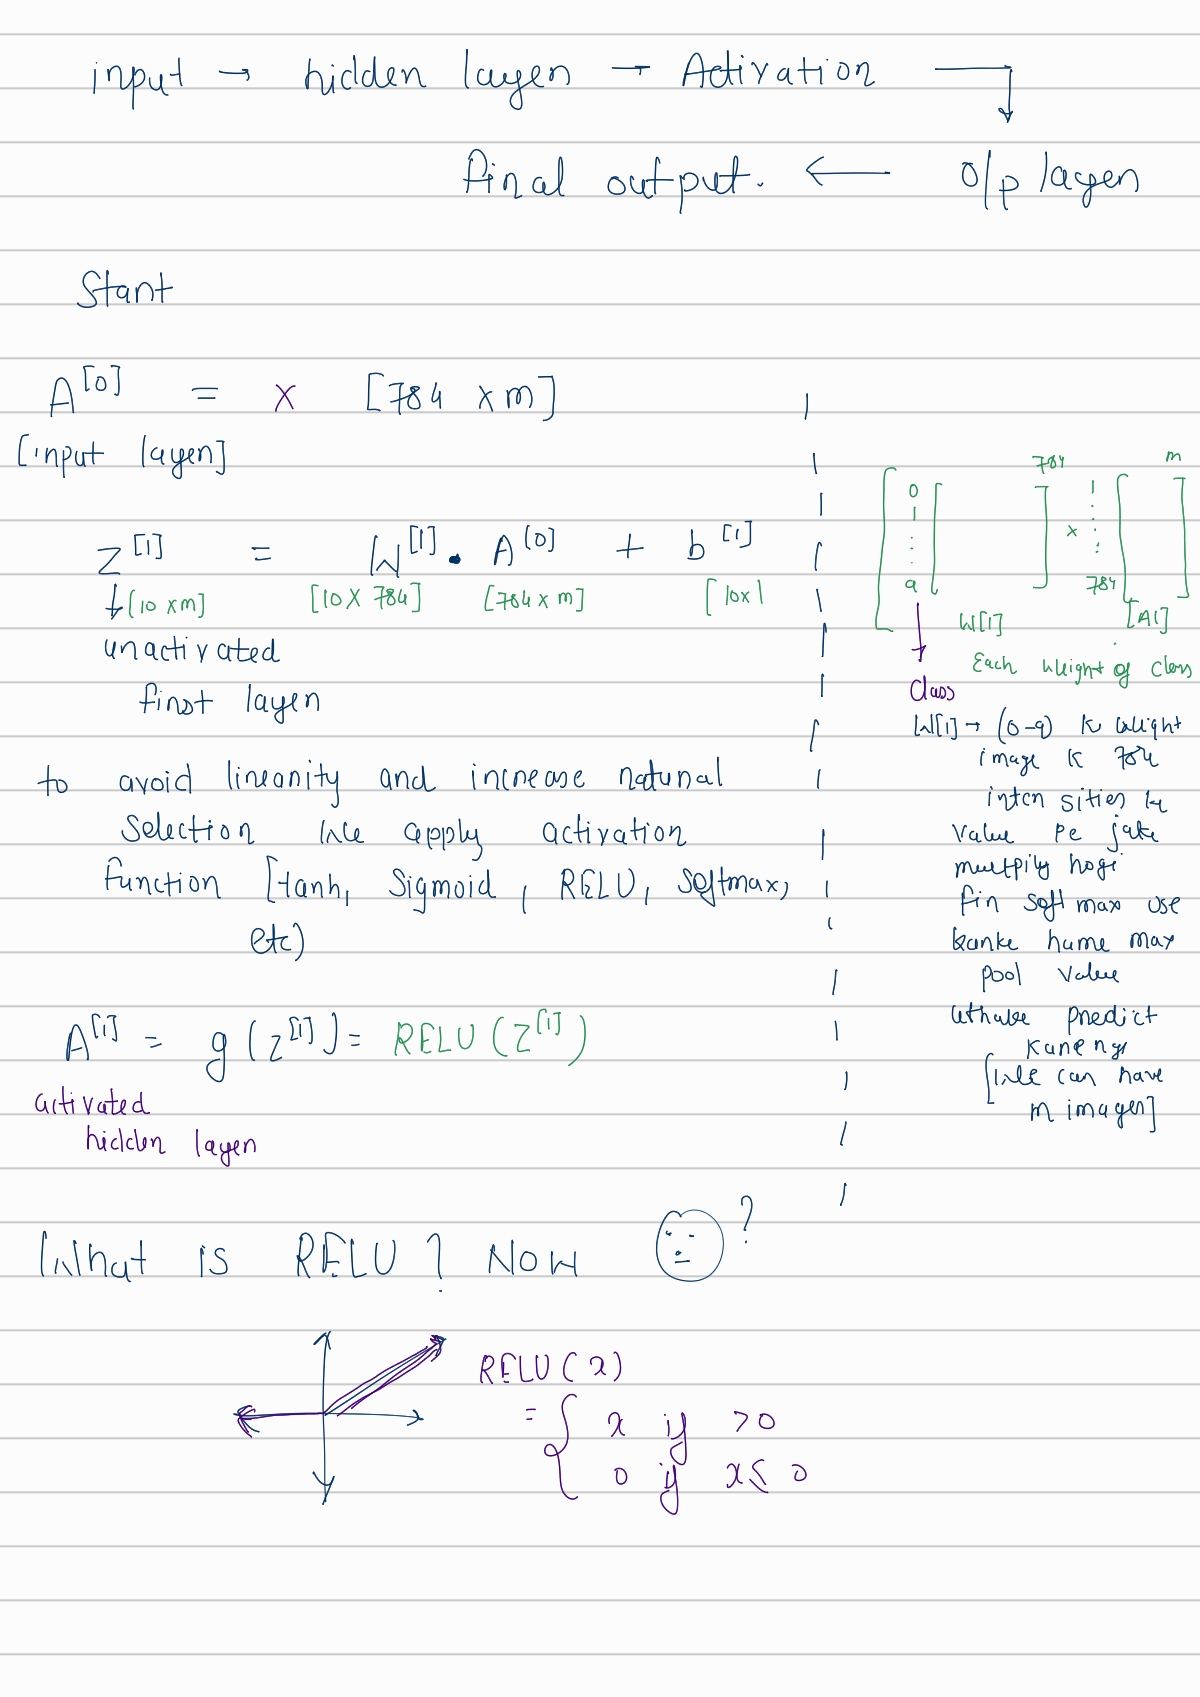 input → hidden layer → Activation
final output. ← o/p layer
Start
A[0] = X [784 x m]
[input layer]
Z[1] = W[1] . A[0] + b[1]
[10 x m] [10 X 784] [784 x m] [10x1
unactivated
first layer
to avoid linearity and increase natural
selection we apply activation
function [tanh, Sigmoid, RELU, softmax,
etc)
A[1] = g(Z[1]) = RELU(Z[1])
activated
hidden layer
784 m
0
1
9
x
1
784
W[1] [A1]
Each weight of class
Class
W[1] → (0-9) k weight
image k 784
intensities ke
value pe jake
multpily hogi
fir softmax use
karke hume max
pool value
uthake predict
karenge
[We can have
m images]
What is RELU? NOW ?
RELU(x)
= { x if >0
0 if x≤0